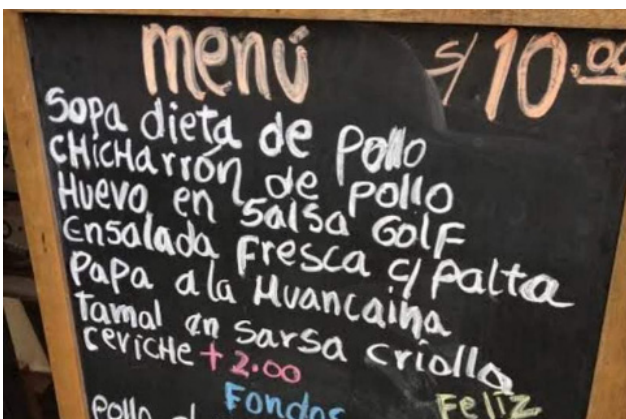 menú S/10.00
Sopa dieta de Pollo
CHicHarrón de Pollo
Huevo en Salsa GolF
Ensalada Fresca c/ Palta
PaPa a la Huancaina
Tamal en sarsa criolla
ceVicHe + 2.00
Fondos Feliz
Pollo